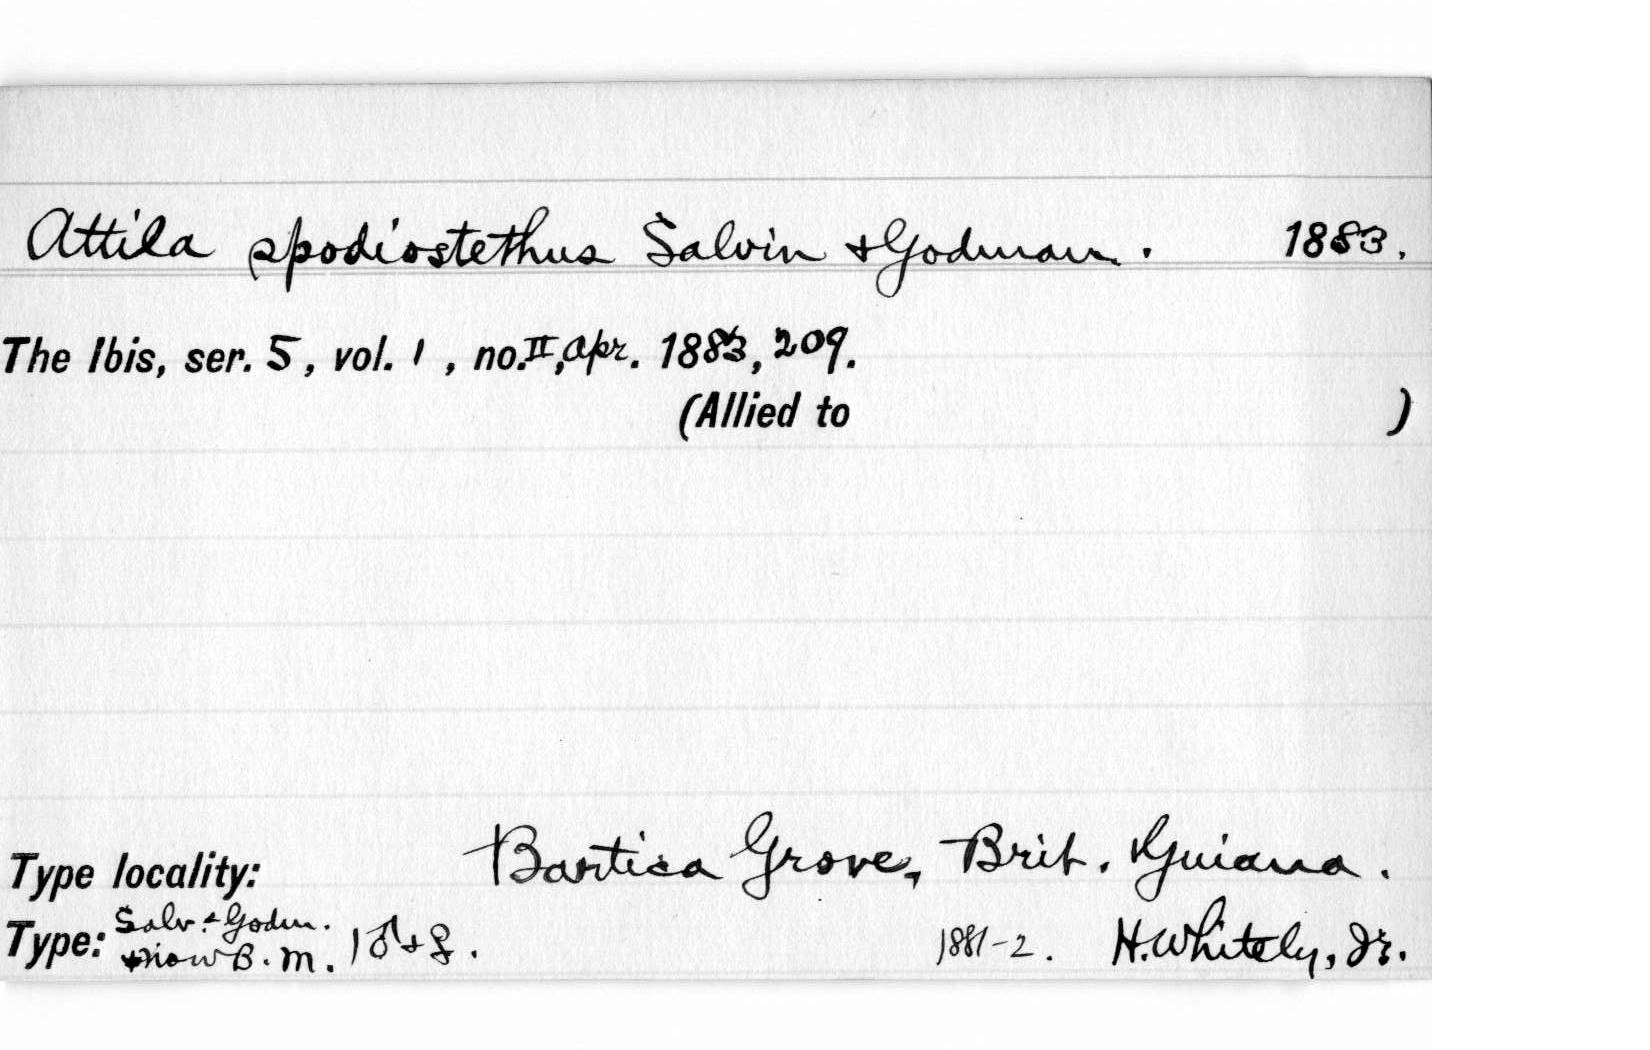 Attila spodiostethus Salvin + Godman. 1883.
The Ibis, ser. 5, vol. 1, no. II, Apr. 1883, 209.
(Allied to )
Type locality: Bartica Grove, Brit. Guiana.
Type: Salv. + Godm. now B.M. 1 ♂ + ♀. 1881-2. H. Whitely, Jr.